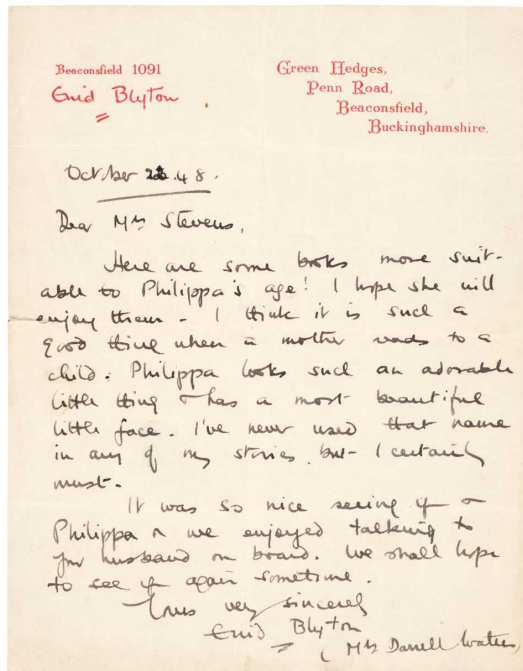 Beaconsfield 1091
Enid Blyton
Green Hedges,
Penn Road,
Beaconsfield,
Buckinghamshire.
October .48.
Dear Mrs Stevens,
Here are some books more suit-
able to Philippa's age! I hope she will
enjoy them - I think it is such a
good thing when a mother reads to a
child. Philippa looks such an adorable
little thing & has a most beautiful
little face. I've never used that name
in any of my stories but I certainly
must.
It was so nice seeing you &
Philippa & we enjoyed talking to
your husband on board. We shall hope
to see you again sometime.
Yours very sincerely
Enid Blyton
(Mrs Darrell Waters)